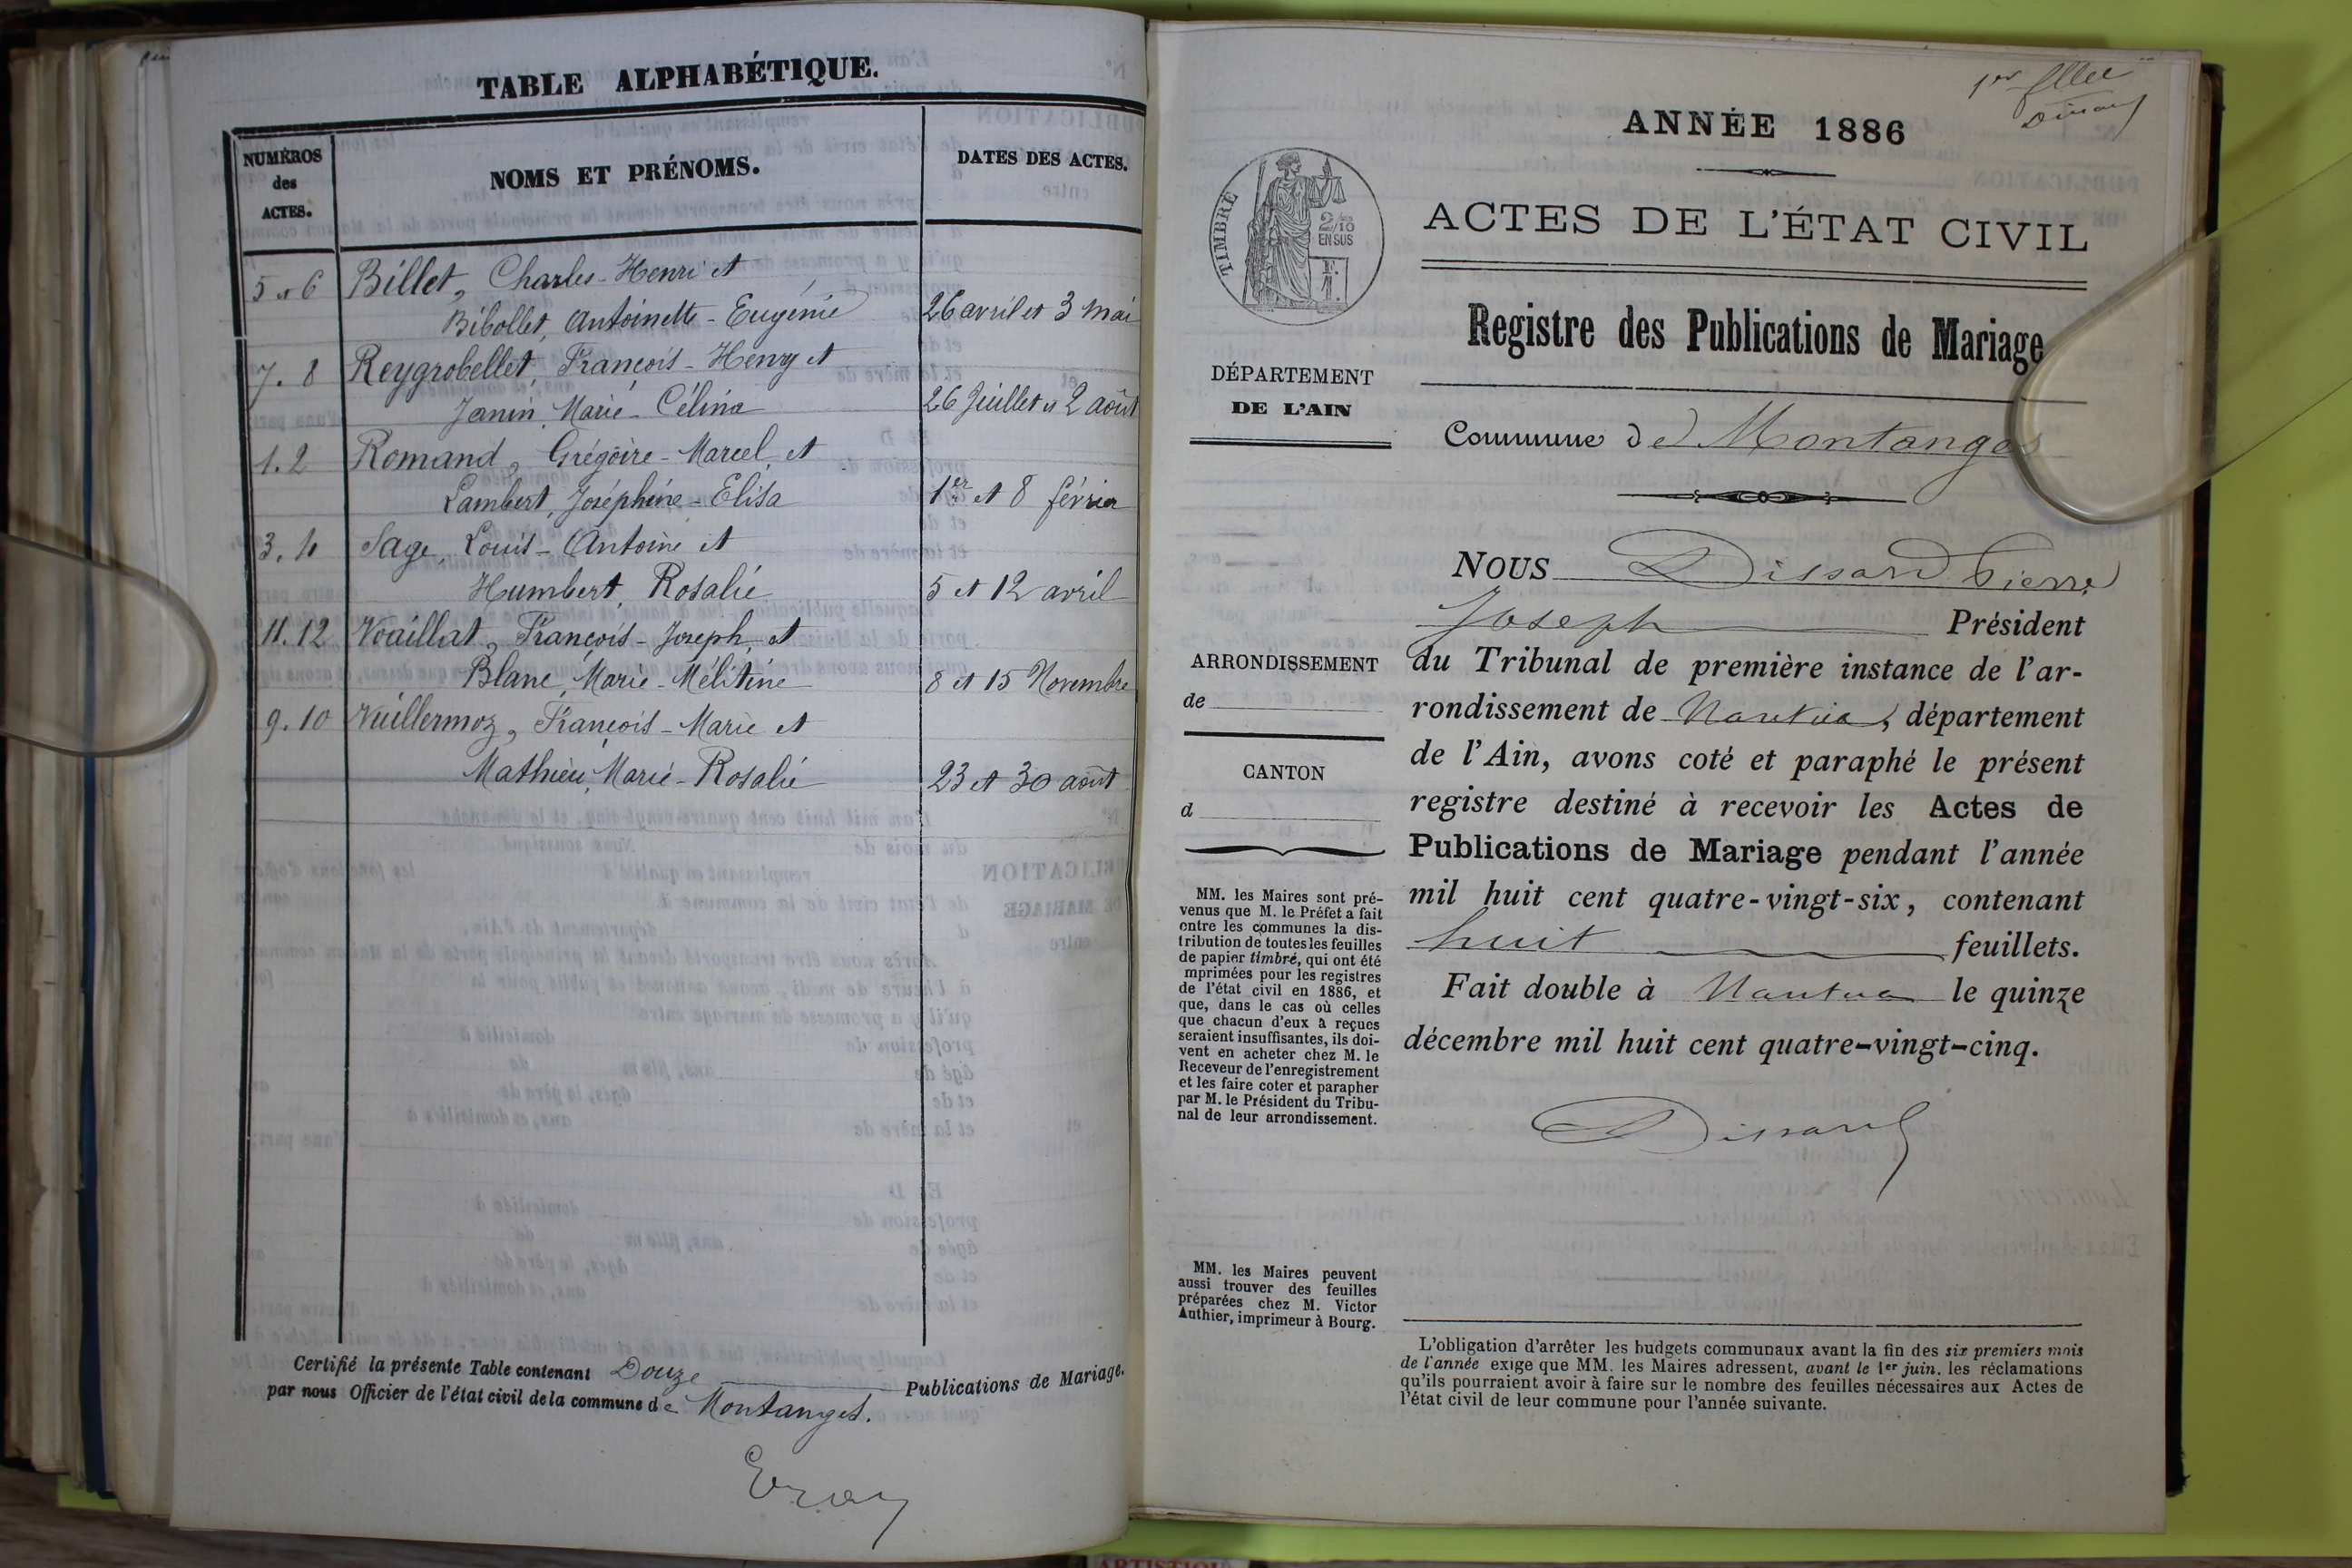 TABLE ALPHABÉTIQUE.
NUMÉROS
des
ACTES.
NOMS ET PRÉNOMS.
DATES DES ACTES.
5 et 6 Billet, Charles-Henri et
Bibollet, Antoinette-Eugénie 26 avril et 3 mai
7. 8 Reygrobellet, François-Henry et
Janin, Marie-Célina 26 Juillet et 2 août
1. 2 Romand, Grégoire-Marcel et
Lambert, Joséphine-Elisa 1er et 8 février
3. 4 Sage, Louis-Antoine et
Humbert, Rosalie 5 et 12 avril
11. 12 Vuaillat, François-Joseph, et
Blanc, Marie-Mélitine 8 et 15 Novembre
9. 10 Vuillermoz, François-Marie et
Mathieu, Marie-Rosalie 23 et 30 août
Certifié la présente Table contenant Douze Publications de Mariage.
par nous Officier de l'état civil de la commune de Montanges.
1er fllet
Dissard
ANNÉE 1886
TIMBRE
2/10
EN SUS
ACTES DE L'ÉTAT CIVIL
Registre des Publications de Mariage
DÉPARTEMENT
DE L'AIN
Commune de Montanges
ARRONDISSEMENT
de
CANTON
d
MM. les Maires sont pré-
venus que M. le Préfet a fait
entre les communes la dis-
tribution de toutes les feuilles
de papier timbré, qui ont été
mprimées pour les registres
de l'état civil en 1886, et
que, dans le cas où celles
que chacun d'eux a reçues
seraient insuffisantes, ils doi-
vent en acheter chez M. le
Receveur de l'enregistrement
et les faire coter et parapher
par M. le Président du Tribu-
nal de leur arrondissement.
MM. les Maires peuvent
aussi trouver des feuilles
préparées chez M. Victor
Authier, imprimeur à Bourg.
NOUS Dissard Pierre
Joseph Président
du Tribunal de première instance de l'ar-
rondissement de Nantua, département
de l'Ain, avons coté et paraphé le présent
registre destiné à recevoir les Actes de
Publications de Mariage pendant l'année
mil huit cent quatre-vingt-six, contenant
huit feuillets.
Fait double à Nantua le quinze
décembre mil huit cent quatre-vingt-cinq.
Dissard
L'obligation d'arrêter les budgets communaux avant la fin des six premiers mois
de l'année exige que MM. les Maires adressent, avant le 1er juin, les réclamations
qu'ils pourraient avoir à faire sur le nombre des feuilles nécessaires aux Actes de
l'état civil de leur commune pour l'année suivante.